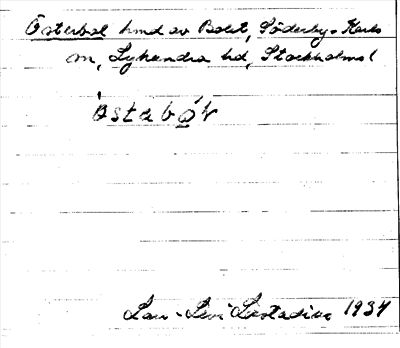 Österbol hmd av Bolet, Söderby-Karls
sn, Lyhundra hd, Stockholms l
Östabòɫ
Lars-Levi Læstadius 1934